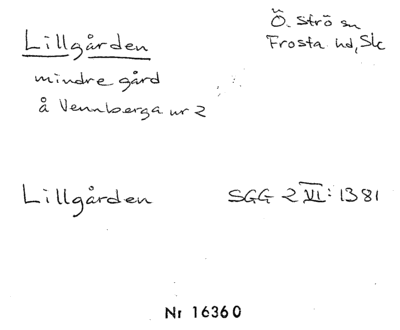 Lillgården
Ö. Strö sn
Frosta hd, Sk
mindre gård
å Vennberga nr 2
Lillgården
SGG 2 VI: 1381
Nr 16360